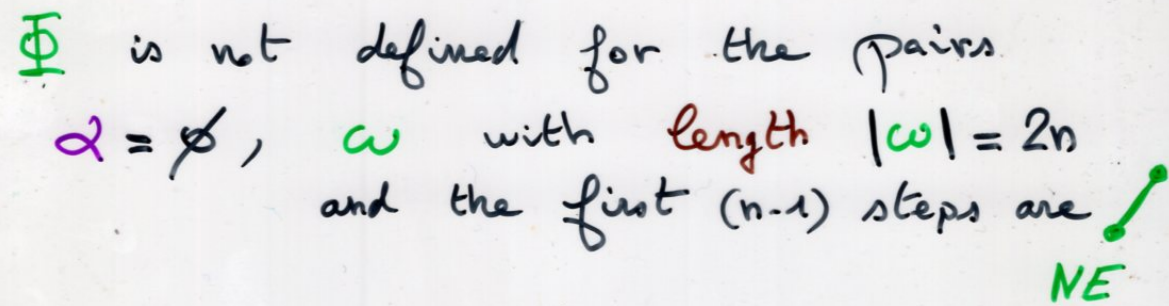 Φ is not defined for the pairs
α = ∅, ω with length |ω| = 2n
and the first (n-1) steps are
NE